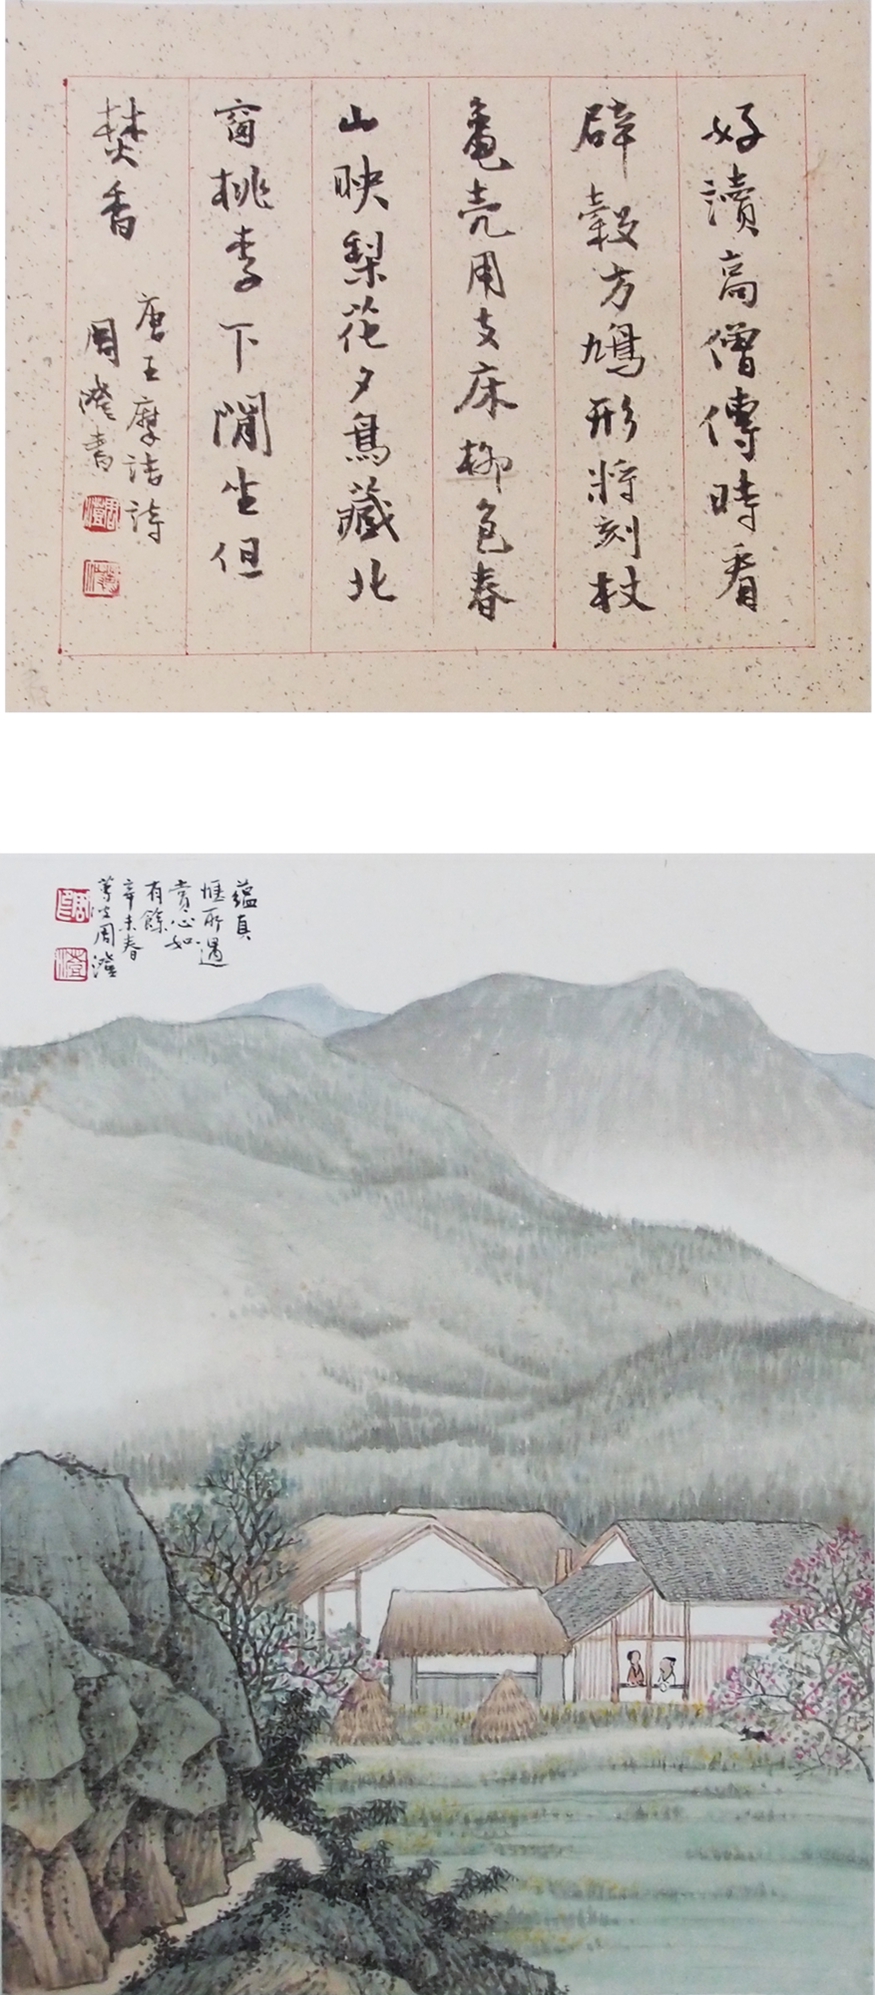 好讀高僧傳時看
辟穀方鳩形將刻杖
龜壳用支床柳色春
山映梨花夕鳥藏北
窗桃李下閒坐但
焚香
唐王摩詰詩
周澄書
周澄
蘊真
愜所遇
賞心如
有餘
辛未春
蓴波周澄
周
澄